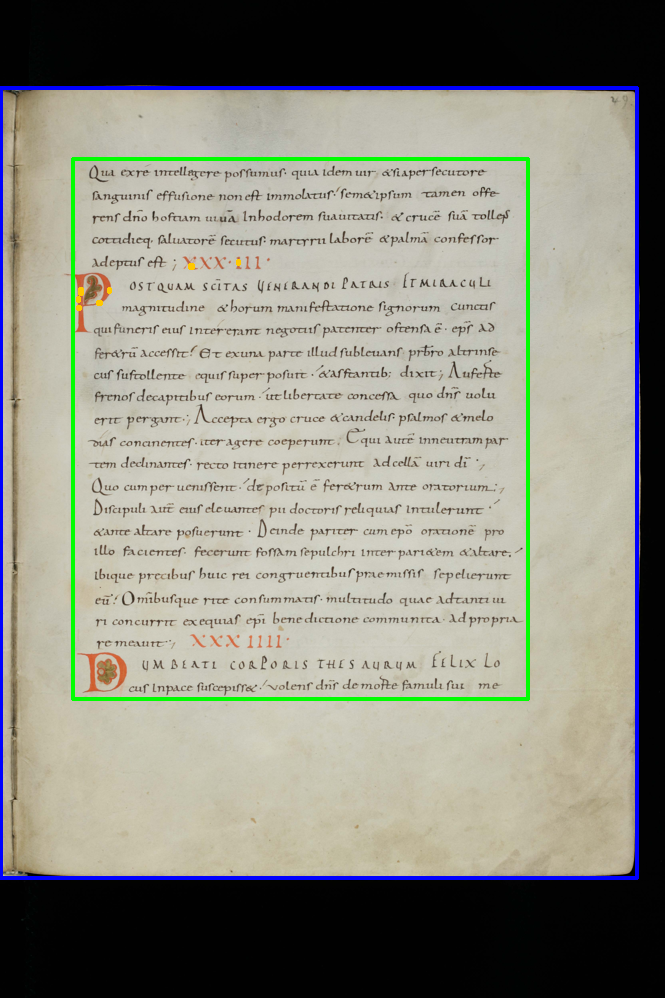 49.
Qua exrē intellegere possumus· quia idem uir, &siapersecutore
sanguinis effusione non est immolatus· sem&ipsum tamen offe
rens dn̄o hostiam uiuā Inhodorem suauitatis· & crucē suā tolles
cottidieq. saluatorē secutus· martyrii laborē &palmā confessor
adeptus est ; XXX·III·
POSTQUAM SCĪTAS VENERANDI PATRIS ETMIRACULI
magnitudine &horum manifestatione signorum cunctis
qui funeris eius Intererant negotiis patenter ostensa ē· ep̄s Ad
fer&rū accessit! Et exuna parte illud subleuans pr̄bro altrinse
cus sustollente equis super posuit· &asstantib; dixit; Auferte
frenos decapitibus eorum· ut libertate concessa quo dn̄s uolu
erit pergant·; Accepta ergo cruce &candelis· psalmos &melo
dias concinentes· iter agere coeperunt. Equi autē inneutram par
tem declinantes· recto Itinere perrexerunt Adcellā uiri dī ·,
Quo cum per uenissent· depositū ē fer&rum Ante oratorium·;,
Discipuli autē eius eleuantes pii doctoris reliquias intulerunt·
&ante altare posuerunt· Deinde pariter cum ep̄o orationē pro
illo facientes· fecerunt fossam sepulchri inter pari&em &altare.
Ibique precibus huic rei congruentibus prae missis sepelierunt
eū! Omībusque rite consummatis· multitudo quae Adtanti ui
ri concurrit exequias ep̄i bene dictione communita· Ad propria
re meauit·, XXX IIII·
DUM BEATI CORPORIS THESAURUM FELIX LO
cus Inpace suscepiss&· uolens dn̄s de morte famuli sui me